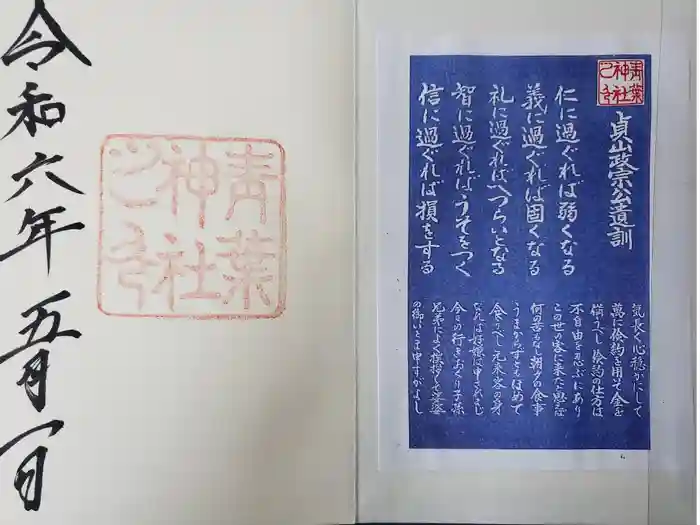 青葉
神社
之印
貞山政宗公遺訓
仁に過ぐれば弱くなる
義に過ぐれば固くなる
礼に過ぐればへつらいとなる
智に過ぐればうそをつく
信に過ぐれば損をする
気長く心穏かにして
萬に倹約を用て金を
備うべし倹約の仕方は
不自由を忍ぶにあり
この世の客に来たと思えば
何の苦もなし朝夕の食事
うまからずともほめて
食うべし元来客の身
なれば好嫌は申されまじ
今日の行をおくり子孫
兄弟によく挨拶して娑婆
の御いとま申すがよし
青葉
神社
之印
令和六年五月一日